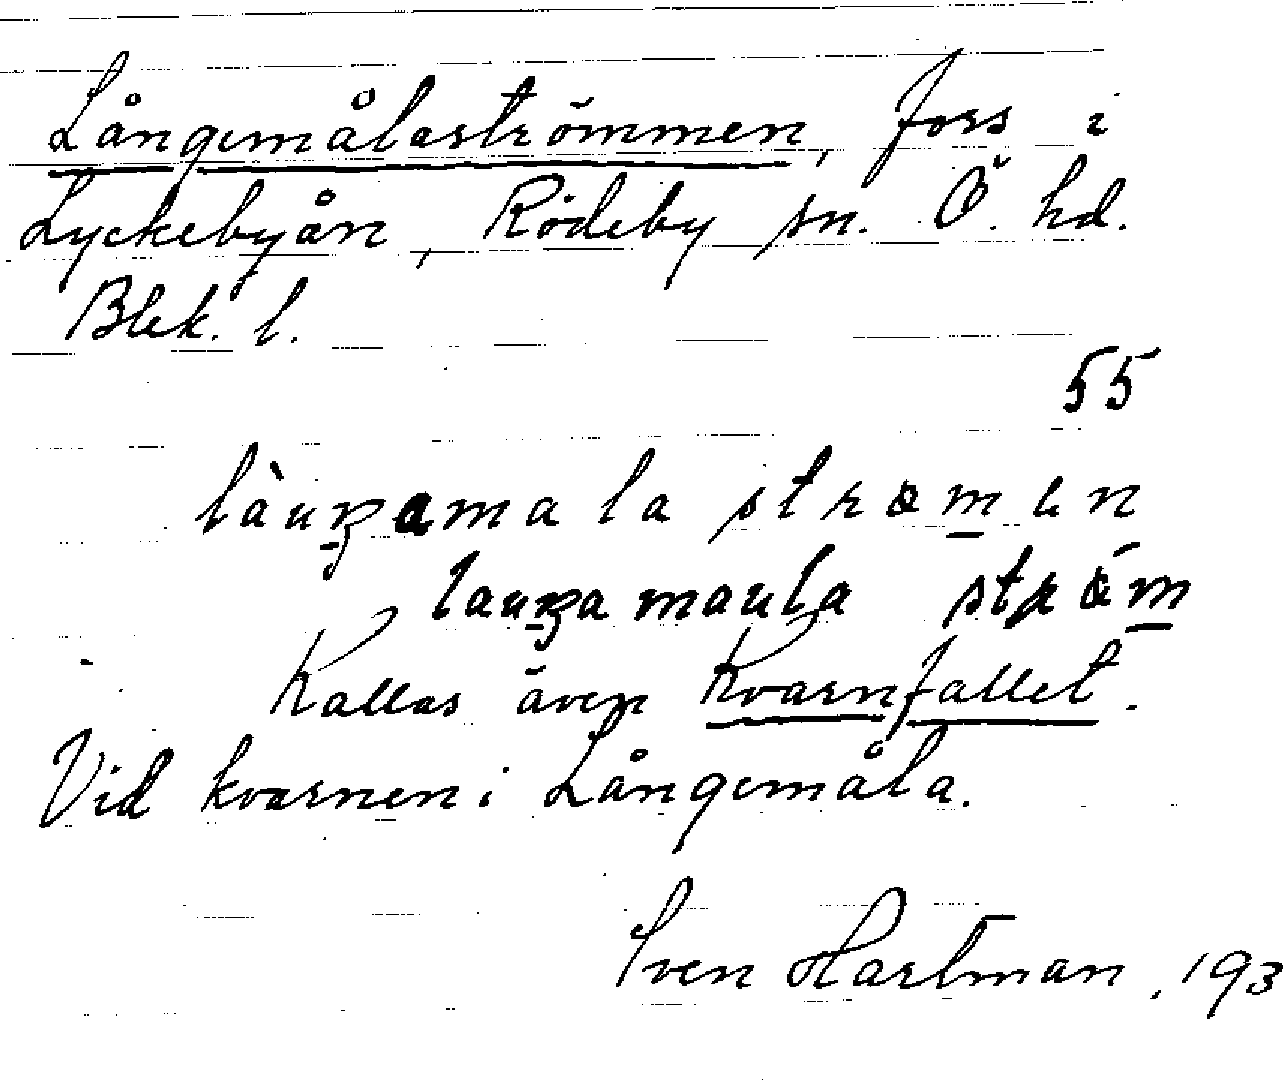 Långemålaströmmen, fors i
Lyckebyån, Rödeby sn. Ö. hd.
Blek. l.
55
làuŋamala strømen
lauŋamaula strǿm
Kallas även Kvarnfallet.
Vid kvarnen i Långemåla.
Sven Hartman, 193